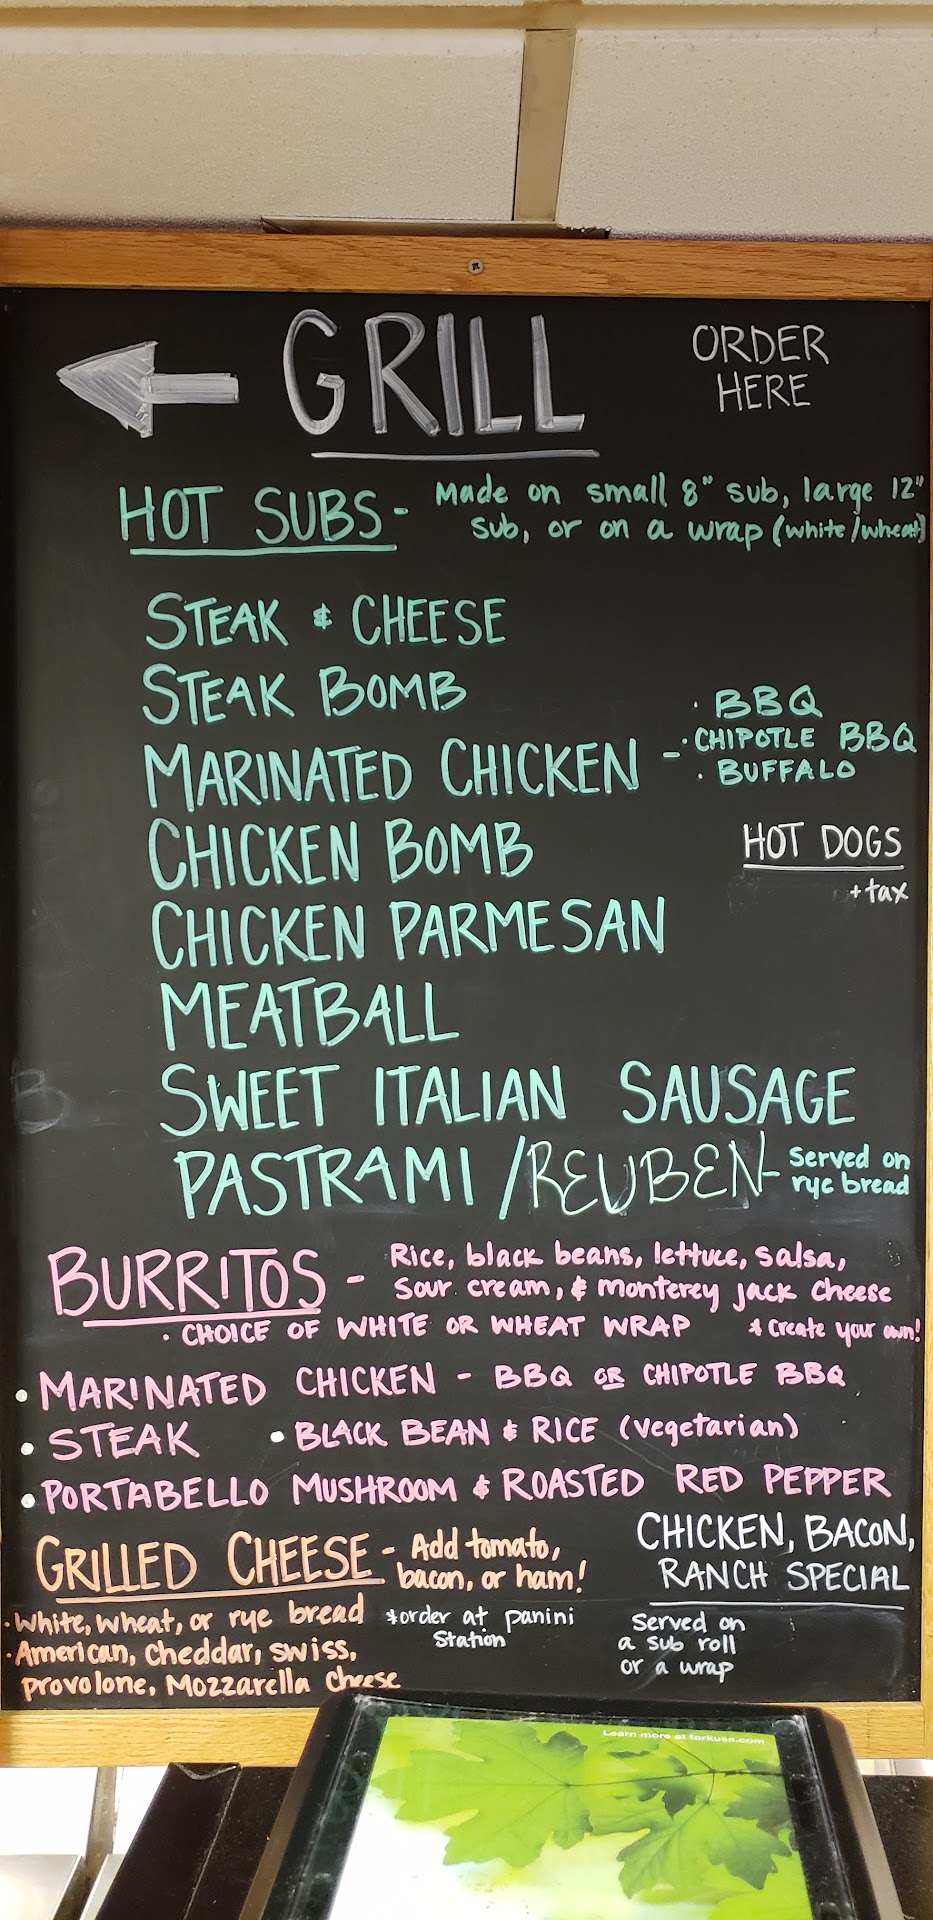 GRILL
ORDER
HERE
HOT SUBS - Made on small 8" sub, large 12"
sub, or on a wrap (white/wheat)
STEAK & CHEESE
STEAK BOMB
MARINATED CHICKEN -
· BBQ
· CHIPOTLE BBQ
· BUFFALO
CHICKEN BOMB
HOT DOGS
+ tax
CHICKEN PARMESAN
MEATBALL
SWEET ITALIAN SAUSAGE
PASTRAMI / REUBEN - served on
rye bread
BURRITOS - Rice, black beans, lettuce, salsa,
sour cream, & monterey jack cheese
· CHOICE OF WHITE OR WHEAT WRAP * create your own!
• MARINATED CHICKEN - BBQ OR CHIPOTLE BBQ
• STEAK • BLACK BEAN & RICE (vegetarian)
• PORTABELLO MUSHROOM & ROASTED RED PEPPER
GRILLED CHEESE - Add tomato,
bacon, or ham!
· White, wheat, or rye bread
· American, cheddar, swiss,
provolone, Mozzarella cheese
*order at panini
station
CHICKEN, BACON,
RANCH SPECIAL
served on
a sub roll
or a wrap
Learn more at torkusa.com